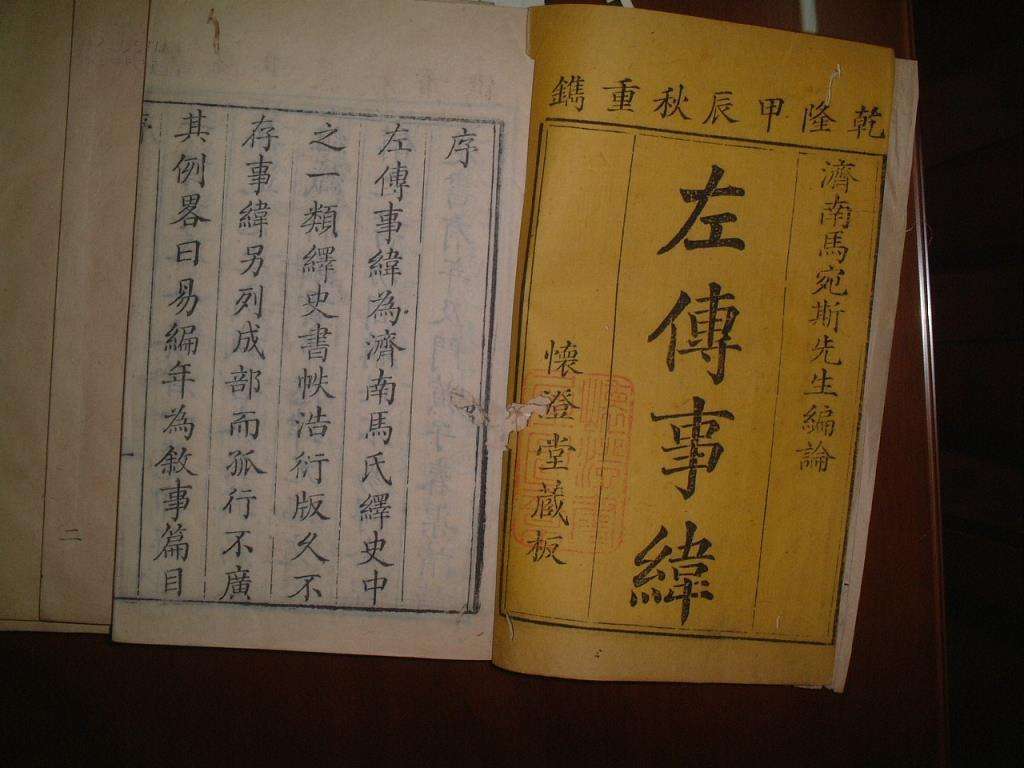 乾隆甲辰秋重鐫
濟南馬宛斯先生編論
左傳事緯
懷澄堂藏板
序
左傳事緯為濟南馬氏繹史中
之一類繹史書帙浩衍版久不
存事緯另列成部而孤行不廣
其例畧曰易編年為敘事篇目
二